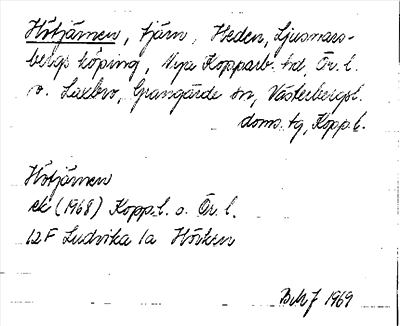 Hötjärnen, tjärn, Heden, Ljusnars-
bergs köping, Nya Kopparb. hd, Ör. l.
o. Laxbro, Grangärde sn, Västerbergsl.
doms. tg, Kopp. l.
Hötjärnen
ek (1968) Kopp. l. o. Ör. l.
12F Ludvika 1a Hörken
1969